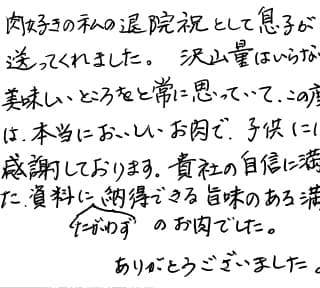 肉好きの私の退院祝として息子が
送ってくれました。 沢山量はいらな
美味しいところをと常に思っていて、この
は、本当においしいお肉で、子供に
感謝しております。貴社の自信に満
た資料に納得できる旨味のある満
たがわず のお肉でした。
ありがとうございました。